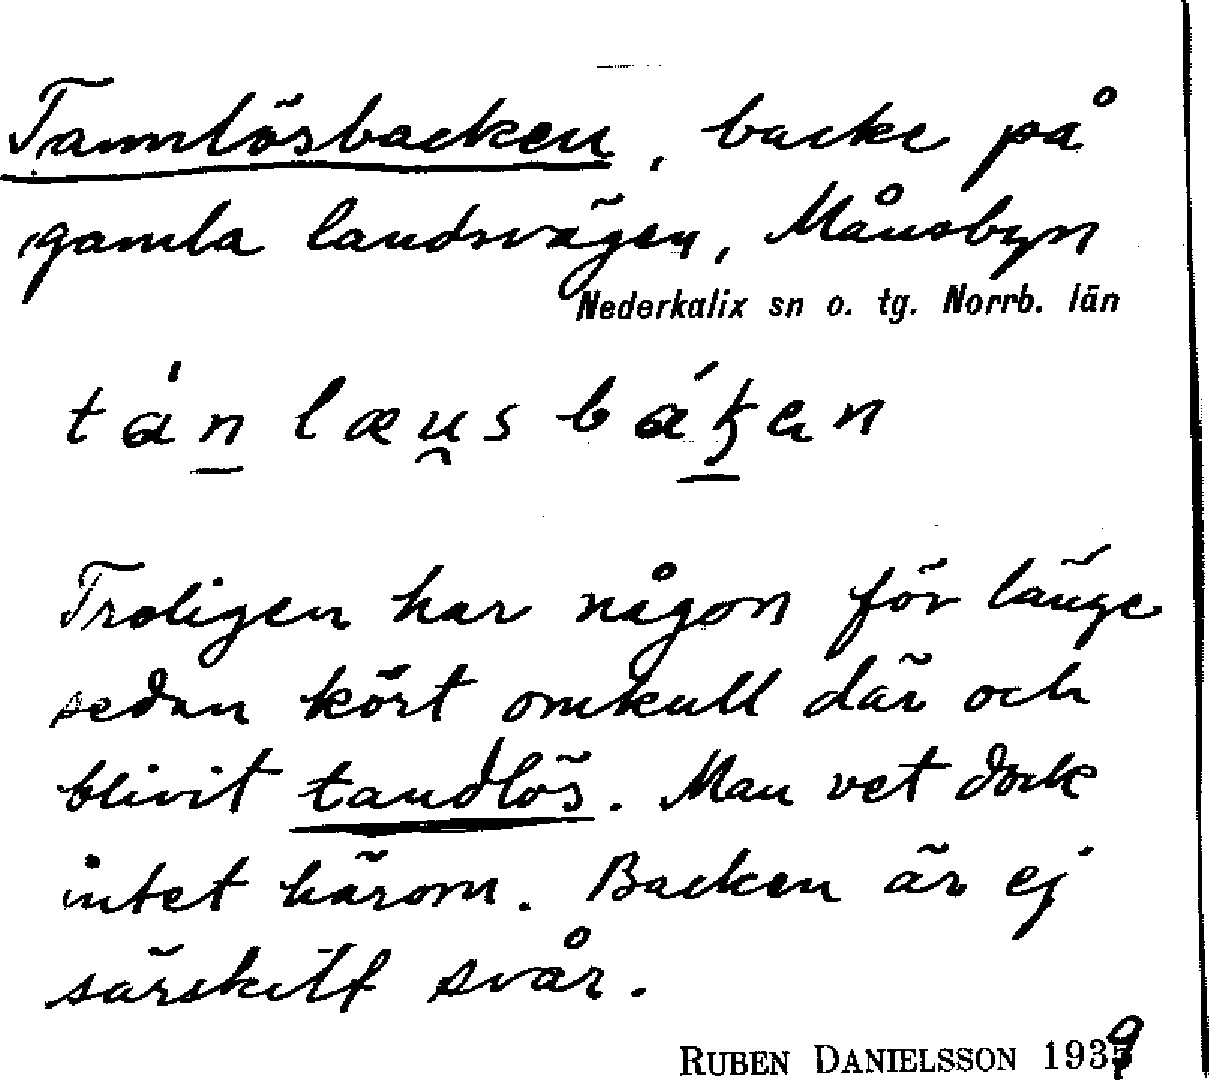 Tannlösbacken, backe på
gamla landsvägen, Månsbyn
Nederkalix sn o. tg. Norrb. län
tán læu̯s báꞣen
Troligen har någon för länge
sedan kört omkull där och
blivit tandlös. Man vet dock
intet härom. Backen är ej
särskilt svår.
RUBEN DANIELSSON 1939